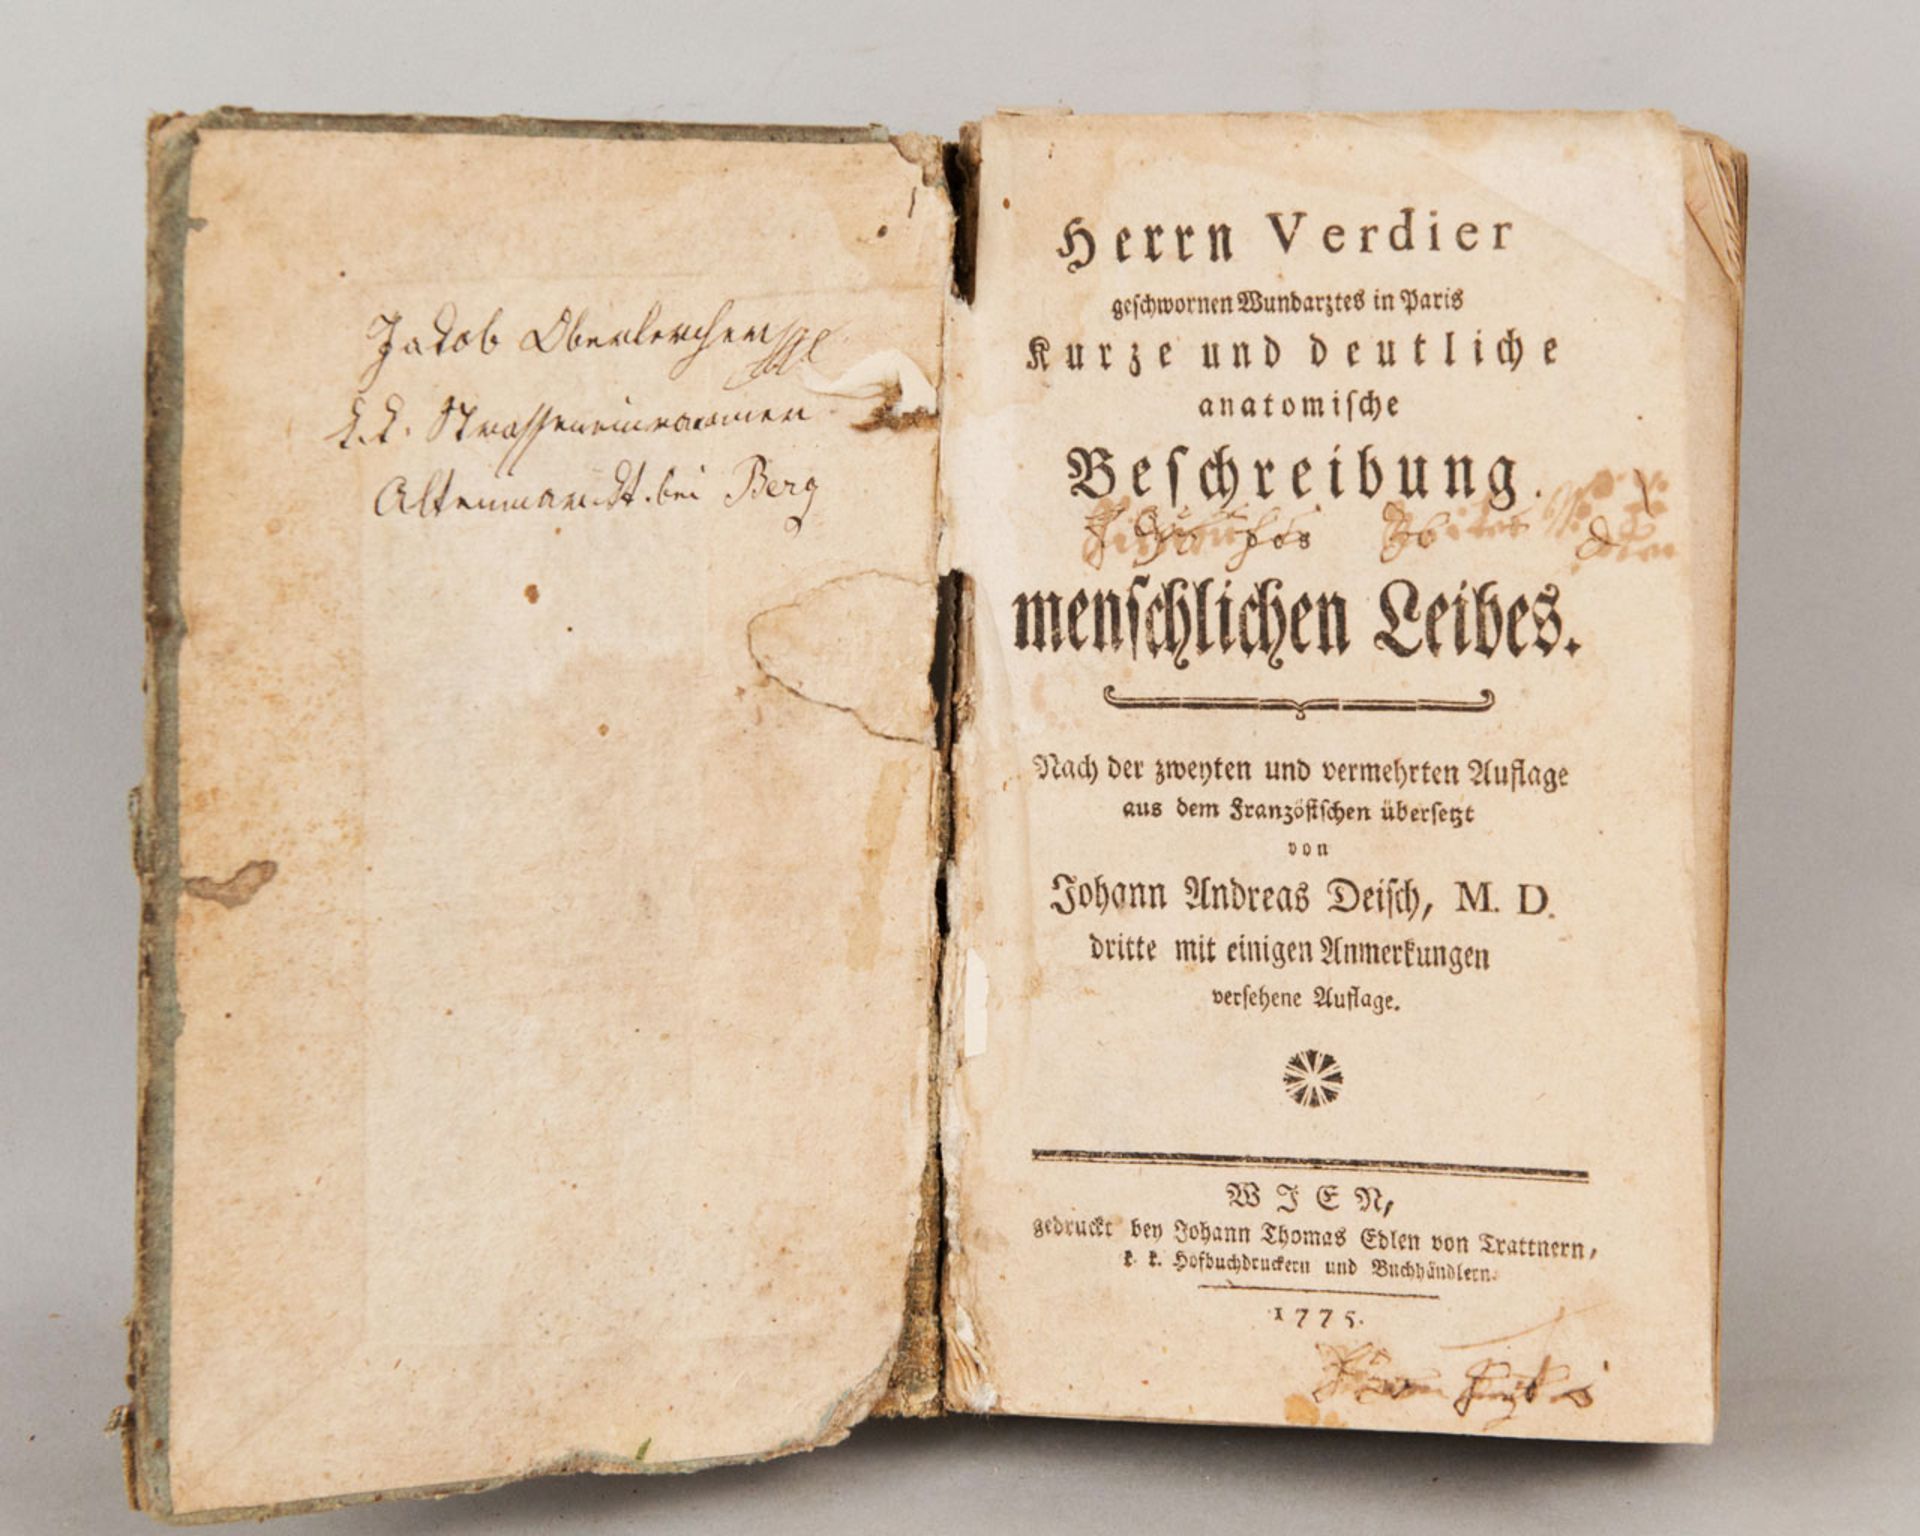 Jakob Oberlercher
k. k. Strasseneinraumer
Altenmarkt bei Berg
Herrn Verdier
geschwornen Wundarztes in Paris
Kurze und deutliche
anatomische
Beschreibung
menschlichen Leibes.
Nach der zweyten und vermehrten Auflage
aus dem Französischen übersetzt
von
Johann Andreas Deisch, M. D.
dritte mit einigen Anmerkungen
versehene Auflage.
WIEN,
gedruckt bey Johann Thomas Edlen von Trattnern,
k. k. Hofbuchdruckern und Buchhändlern.
1775.